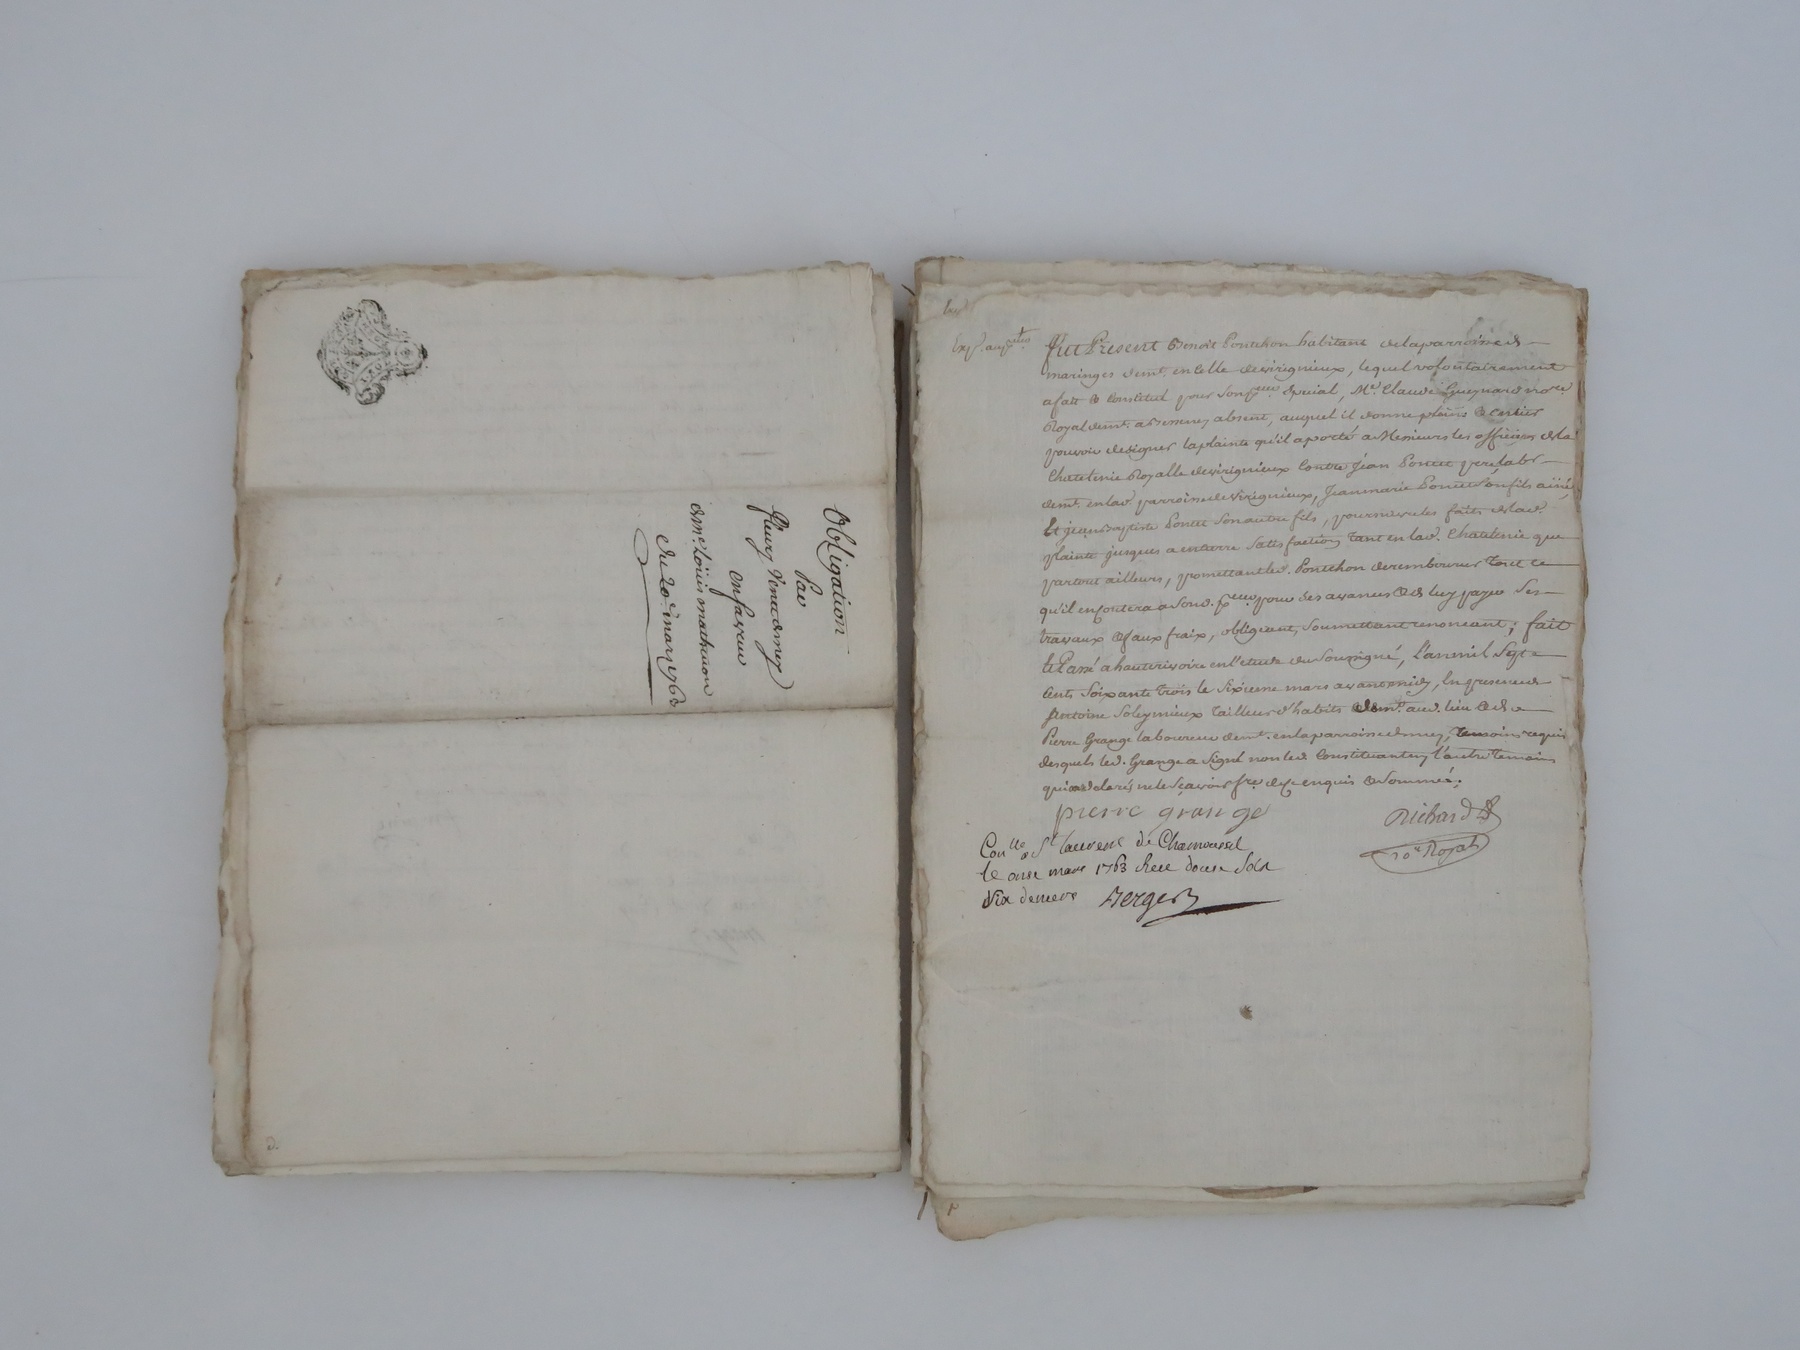 Obligation
Par
Fleury Venet de mey
en faveur
de me. Loüis mathevon
du 20e. mars 1763
Fut Present Benoit Ponchon habitant de la parroisse de
maringes demt. en celle de virigneux, lequel volontairement
a fait & constitué pour son preur. special, Me. Claude Gueynard nore.
Royal demt. a absent, auquel il donne plains & entier
pouvoir de signer la plainte qu'il a porté a Messieurs les officiers de la
Chatelenie Royalle de virigneux Contre Jean Poncet pere labr
demt. en lad. parroisse de virigneux, Jean marie Poncet son fils ainé,
Et jean Baptiste Poncet son autre fils, poursuivre les faits de lad.
plainte jusques a entierre satisfaction tant en lad. Chatelenie que
partout ailleurs, promettant led. Ponchon de rembourser tout ce
qu'il en coutera a sond. preur. pour ses avances & de luy payer ses
travaux & faux fraix, obligeant, soumettant renonceant; fait
et Passé a hauterivoire en l'etude du soussigné, L'an mil sept
cents soixante trois le sixieme mars avant midy, En presence de
Antoine Soleymieux tailleur d'habits demt. aud. lieu & de
Pierre Grange laboureur demt. en la parroisse de mey, temoins requis
desquels led. Grange a signé non led. Constituant ny l'autre temoins
qui ont declarés ne le sçavoir fre. de ce enquis & sommé.
pierre grange
Richard
nore. Royal
Conllé. a St. laurent de Chamousset
le onse mars 1763 Reçu douse sols
dix deniers Berger